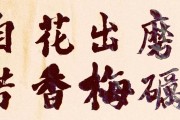 磨礪
出梅
花香
自苦